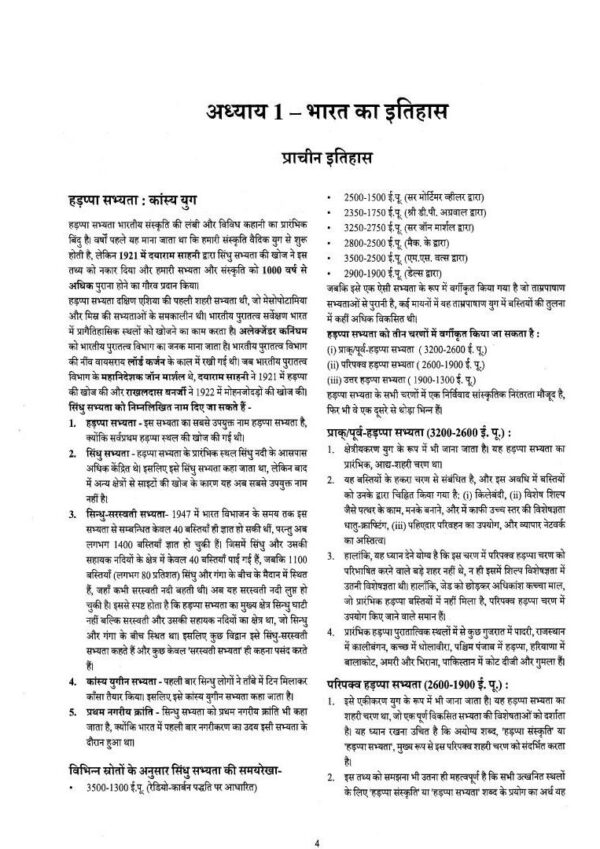 अध्याय 1 – भारत का इतिहास
प्राचीन इतिहास
हड़प्पा सभ्यता : कांस्य युग
हड़प्पा सभ्यता भारतीय संस्कृति की लंबी और विविध कहानी का प्रारंभिक
बिंदु है। वर्षों पहले यह माना जाता था कि हमारी संस्कृति वैदिक युग से शुरू
होती है, लेकिन 1921 में दयाराम साहनी द्वारा सिंधु सभ्यता की खोज ने इस
तथ्य को नकार दिया और हमारी सभ्यता और संस्कृति को 1000 वर्ष से
अधिक पुराना होने का गौरव प्रदान किया।
हड़प्पा सभ्यता दक्षिण एशिया की पहली शहरी सभ्यता थी, जो मेसोपोटामिया
और मिस्र की सभ्यताओं के समकालीन थी। भारतीय पुरातत्व सर्वेक्षण भारत
में प्रागैतिहासिक स्थलों को खोजने का काम करता है। अलेक्जेंडर कनिंघम
को भारतीय पुरातत्व विभाग का जनक माना जाता है। भारतीय पुरातत्व विभाग
की नींव वायसराय लॉर्ड कर्जन के काल में रखी गई थी। जब भारतीय पुरातत्व
विभाग के महानिदेशक जॉन मार्शल थे, दयाराम साहनी ने 1921 में हड़प्पा
की खोज की और राखलदास बनर्जी ने 1922 में मोहनजोदड़ो की खोज की।
सिंधु सभ्यता को निम्नलिखित नाम दिए जा सकते हैं -
1. हड़प्पा सभ्यता - इस सभ्यता का सबसे उपयुक्त नाम हड़प्पा सभ्यता है,
क्योंकि सर्वप्रथम हड़प्पा स्थल की खोज की गई थी।
2. सिंधु सभ्यता - हड़प्पा सभ्यता के प्रारंभिक स्थल सिंधु नदी के आसपास
अधिक केंद्रित थे। इसलिए इसे सिंधु सभ्यता कहा जाता था, लेकिन बाद
में अन्य क्षेत्रों से साइटों की खोज के कारण यह अब सबसे उपयुक्त नाम
नहीं है।
3. सिन्धु-सरस्वती सभ्यता- 1947 में भारत विभाजन के समय तक इस
सभ्यता से सम्बन्धित केवल 40 बस्तियाँ ही ज्ञात हो सकी थीं, परन्तु अब
लगभग 1400 बस्तियाँ ज्ञात हो चुकी हैं। जिसमें सिंधु और उसकी
सहायक नदियों के क्षेत्र में केवल 40 बस्तियाँ पाई गई हैं, जबकि 1100
बस्तियाँ (लगभग 80 प्रतिशत) सिंधु और गंगा के बीच के मैदान में स्थित
हैं, जहाँ कभी सरस्वती नदी बहती थी। अब यह सरस्वती नदी लुप्त हो
चुकी है। इससे स्पष्ट होता है कि हड़प्पा सभ्यता का मुख्य क्षेत्र सिन्धु घाटी
नहीं बल्कि सरस्वती और उसकी सहायक नदियों का क्षेत्र था, जो सिन्धु
और गंगा के बीच स्थित था। इसलिए कुछ विद्वान इसे सिंधु-सरस्वती
सभ्यता कहते हैं और कुछ केवल 'सरस्वती सभ्यता' ही कहना पसंद करते
हैं।
4. कांस्य युगीन सभ्यता - पहली बार सिन्धु लोगों ने ताँबे में टिन मिलाकर
काँसा तैयार किया। इसलिए इसे कांस्य युगीन सभ्यता कहा जाता है।
5. प्रथम नगरीय क्रांति - सिन्धु सभ्यता को प्रथम नगरीय क्रांति भी कहा
जाता है, क्योंकि भारत में पहली बार नगरीकरण का उदय इसी सभ्यता के
दौरान हुआ था।
विभिन्न स्रोतों के अनुसार सिंधु सभ्यता की समयरेखा-
• 3500-1300 ई.पू. (रेडियो-कार्बन पद्धति पर आधारित)
• 2500-1500 ई.पू. (सर मोर्टिमर व्हीलर द्वारा)
• 2350-1750 ई.पू. (श्री डी.पी. अग्रवाल द्वारा)
• 3250-2750 ई.पू. (सर जॉन मार्शल द्वारा)
• 2800-2500 ई.पू. (मैक. के द्वारा)
• 3500-2500 ई.पू. (एम.एस. वत्स द्वारा)
• 2900-1900 ई.पू. (डेल्स द्वारा)
जबकि इसे एक ऐसी सभ्यता के रूप में वर्गीकृत किया गया है जो ताम्रपाषाण
सभ्यताओं से पुरानी है, कई मायनों में यह ताम्रपाषाण युग में बस्तियों की तुलना
में कहीं अधिक विकसित थी।
हड़प्पा सभ्यता को तीन चरणों में वर्गीकृत किया जा सकता है :
(i) प्राक्/पूर्व-हड़प्पा सभ्यता ( 3200-2600 ई. पू.)
(ii) परिपक्व हड़प्पा सभ्यता ( 2600-1900 ई. पू.)
(iii) उत्तर हड़प्पा सभ्यता ( 1900-1300 ई. पू.)
हड़प्पा सभ्यता के सभी चरणों में एक निर्विवाद सांस्कृतिक निरंतरता मौजूद है,
फिर भी वे एक दूसरे से थोड़ा भिन्न हैं।
प्राक्/पूर्व-हड़प्पा सभ्यता (3200-2600 ई. पू.) :
1. क्षेत्रीयकरण युग के रूप में भी जाना जाता है। यह हड़प्पा सभ्यता का
प्रारंभिक, आद्य-शहरी चरण था।
2. यह बस्तियों के हकरा चरण से संबंधित है, और इस अवधि में बस्तियों
को उनके द्वारा चिह्नित किया गया है: (i) किलेबंदी, (ii) विशेष शिल्प
जैसे पत्थर के काम, मनके बनाने, और में काफी उच्च स्तर की विशेषज्ञता
धातु-क्राफ्टिंग, (iii) पहिएदार परिवहन का उपयोग, और व्यापार नेटवर्क
का अस्तित्व।
3. हालांकि, यह ध्यान देने योग्य है कि इस चरण में परिपक्व हड़प्पा चरण को
परिभाषित करने वाले बड़े शहर नहीं थे, न ही इसमें शिल्प विशेषज्ञता में
उतनी विशेषज्ञता थी। हालाँकि, जेड को छोड़कर अधिकांश कच्चा माल,
जो प्रारंभिक हड़प्पा बस्तियों में नहीं मिला है, परिपक्व हड़प्पा चरण में
उपयोग किए जाने वाले समान हैं।
4. प्रारंभिक हड़प्पा पुरातात्विक स्थलों में से कुछ गुजरात में पादरी, राजस्थान
में कालीबंगन, कच्छ में धोलावीरा, पश्चिम पंजाब में हड़प्पा, हरियाणा में
बालाकोट, अमरी और भिराना, पाकिस्तान में कोट दीजी और गुमला हैं।
परिपक्व हड़प्पा सभ्यता (2600-1900 ई. पू.) :
1. इसे एकीकरण युग के रूप में भी जाना जाता है। यह हड़प्पा सभ्यता का
शहरी चरण था, जो एक पूर्ण विकसित सभ्यता की विशेषताओं को दर्शाता
है। यह ध्यान रखना उचित है कि अयोग्य शब्द, 'हड़प्पा संस्कृति' या
'हड़प्पा सभ्यता', मुख्य रूप से इस परिपक्व शहरी चरण को संदर्भित करता
है।
2. इस तथ्य को समझना भी उतना ही महत्वपूर्ण है कि सभी उत्खनित स्थलों
के लिए 'हड़प्पा संस्कृति' या 'हड़प्पा सभ्यता' शब्द के प्रयोग का अर्थ यह
4